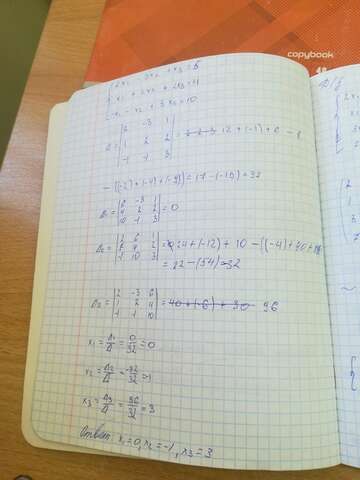 copybook
48
x₁ + 2x₂ + 2x₃ = 4
- x₁ - x₂ + 3x₃ = 10
Δ = |2 -3 1|
|1 2 2|
|-1 -1 3|
= 12 + (-1) + 6
- ((-2) + (-4) + (-9)) = 17 - (-15) = 32
Δ₁ = |6 -3 1|
|4 2 2|
|10 -1 3|
= 0
Δ₂ = |2 6 1|
|1 4 2|
|-1 10 3|
= 24 + (-12) + 10 - ((-4) + 40 +
= 22 - (54) = -32
Δ₃ = |2 -3 6|
|1 2 4|
|-1 -1 10|
= 40 + (-6) + 30 96
x₁ = Δ₁/Δ = 0/32 = 0
x₂ = Δ₂/Δ = -32/32 = -1
x₃ = Δ₃/Δ = 96/32 = 3
Ответ: x₁ = 0, x₂ = -1, x₃ = 3